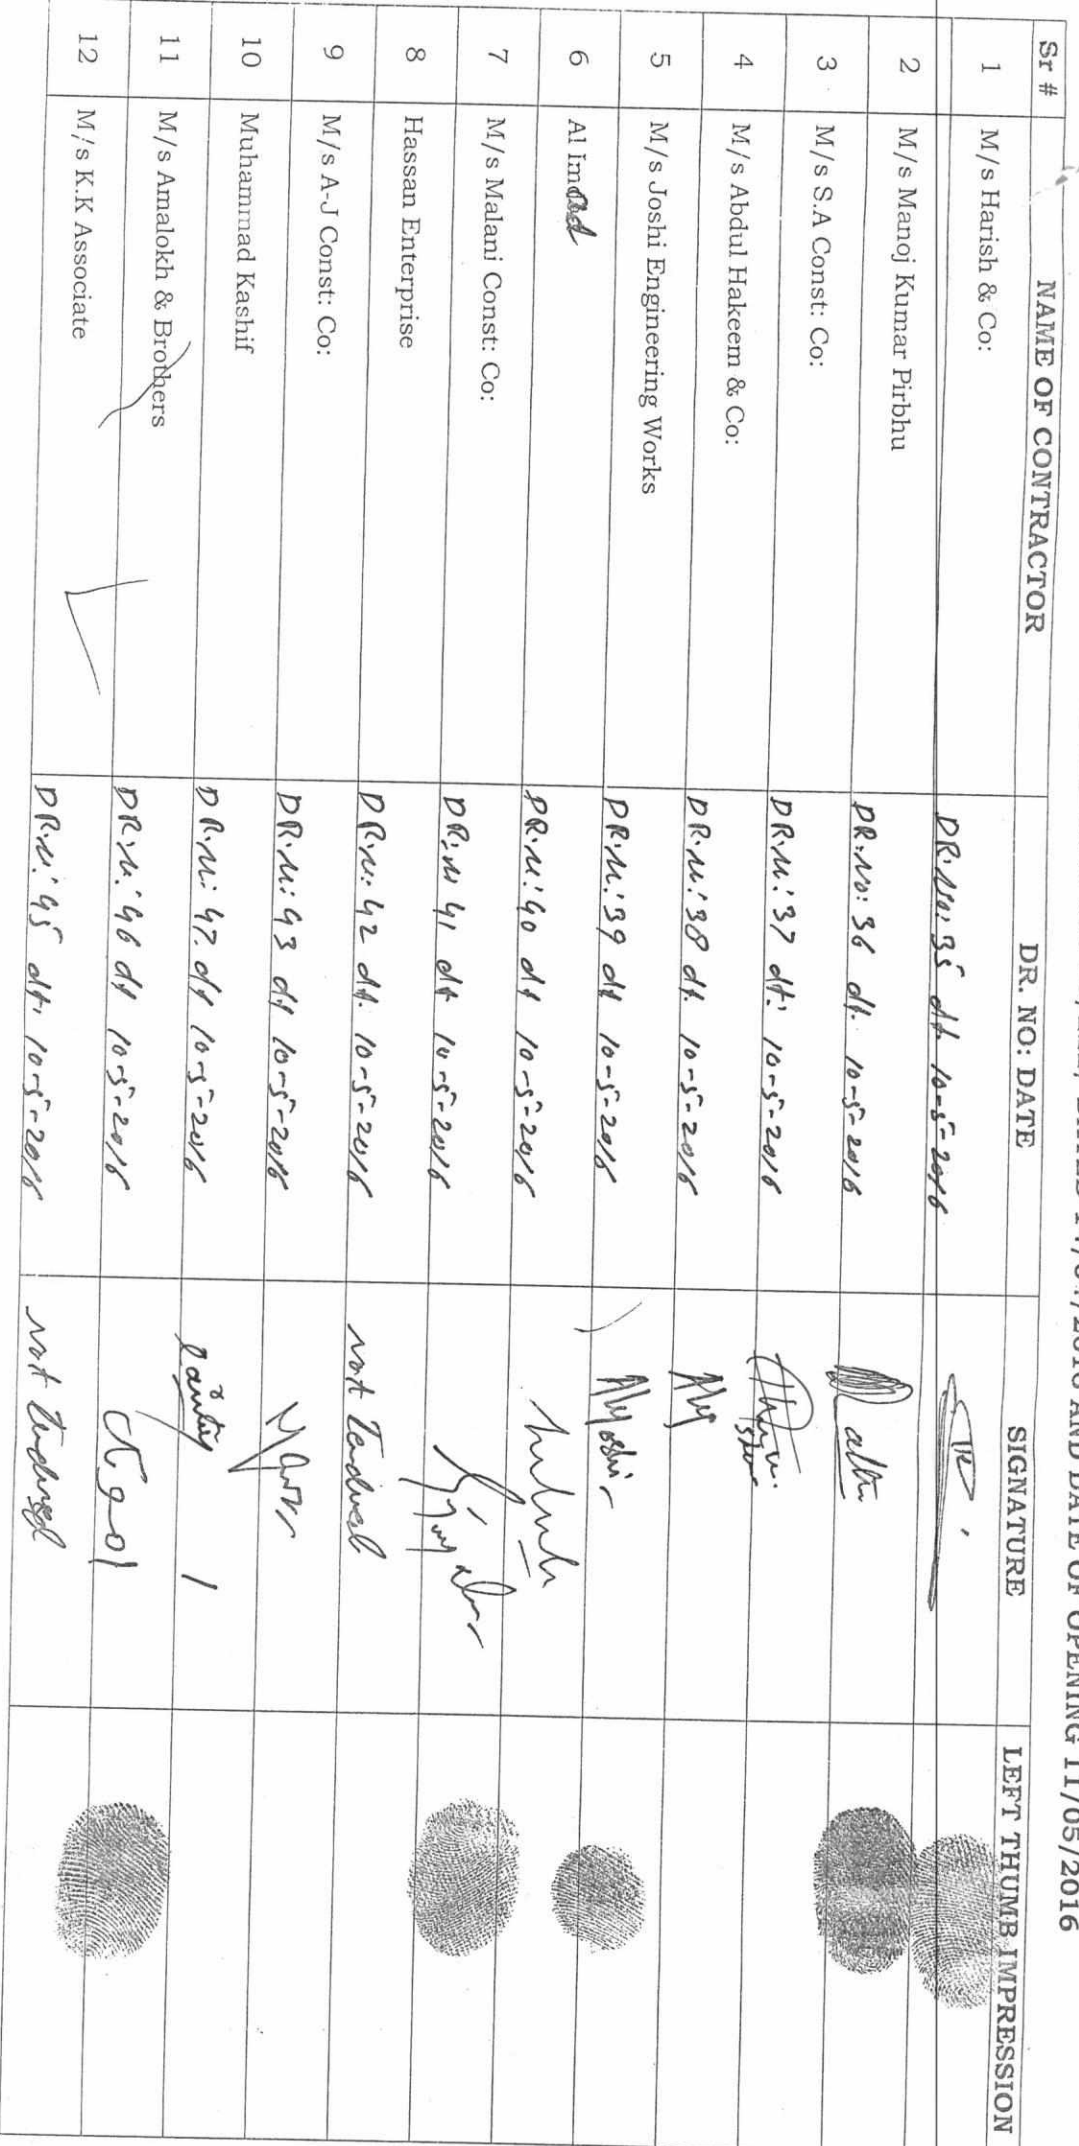 2016 AND DATE OF OPENING 11/05/2016
Sr # NAME OF CONTRACTOR DR. NO: DATE SIGNATURE LEFT THUMB IMPRESSION
1 M/s Harish & Co: DR.No: 35 dt. 10-5-2016
2 M/s Manoj Kumar Pirbhu DR.No: 36 dt. 10-5-2016
3 M/s S.A Const: Co: DR.N: 37 dt: 10-5-2016
4 M/s Abdul Hakeem & Co: DR.N: 38 dt. 10-5-2016
5 M/s Joshi Engineering Works DR.N: 39 dt 10-5-2016
6 Al Imad DR.N: 40 dt 10-5-2016
7 M/s Malani Const: Co: DR.N 41 dt 10-5-2016
8 Hassan Enterprise DR.N: 42 dt. 10-5-2016 not Tendered
9 M/s A-J Const: Co: DR.N: 43 dt 10-5-2016
10 Muhammad Kashif DR.N: 47. dt 10-5-2016
11 M/s Amalokh & Brothers DR.N: 46 dt 10-5-2016
12 M/s K.K Associate DR.N: 45 dt. 10-5-2016 not Tendered